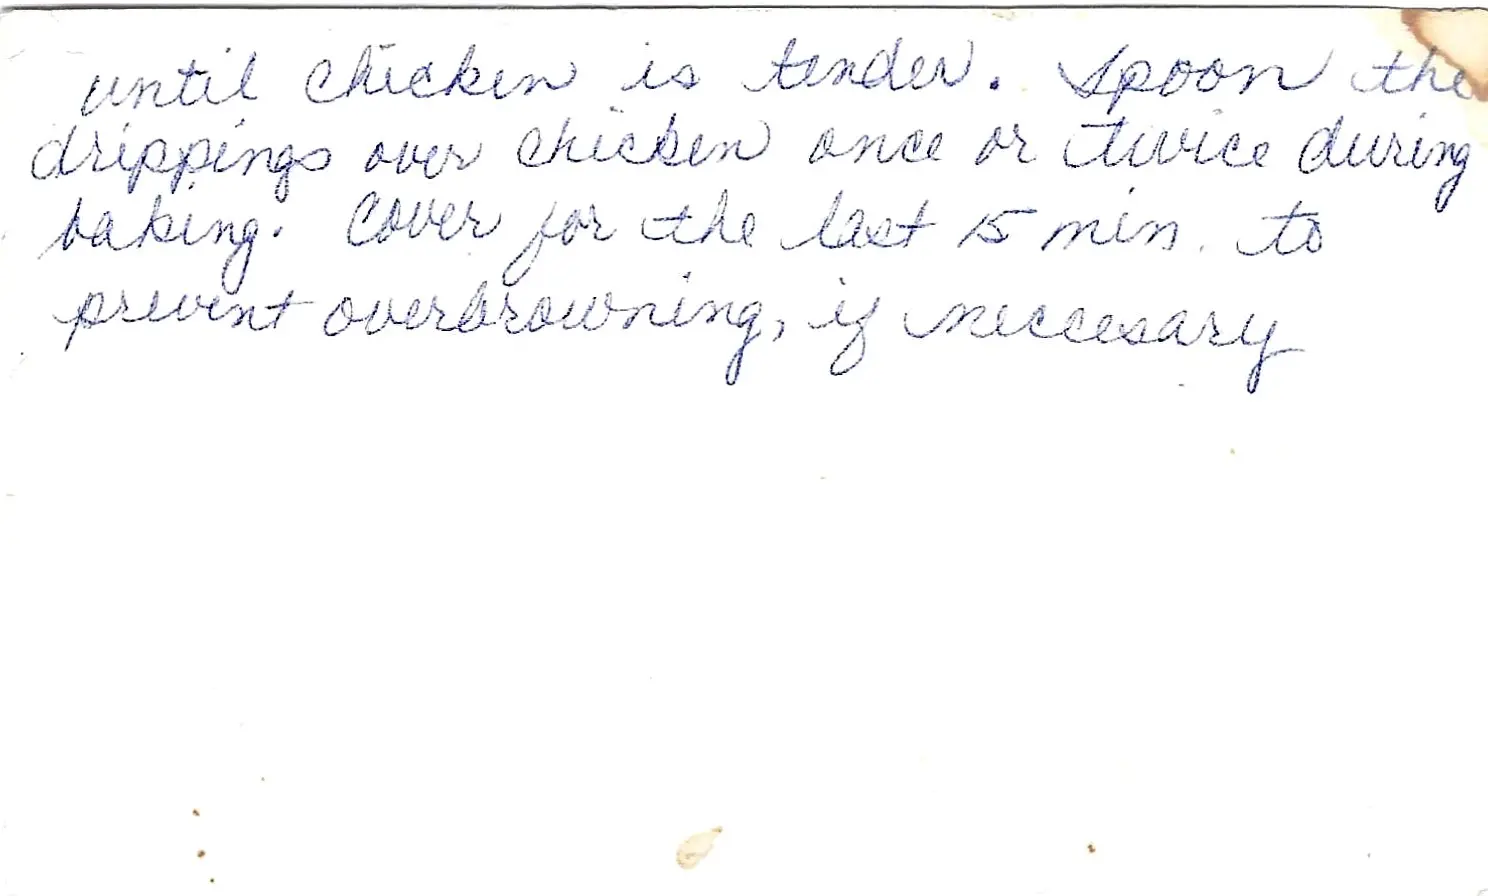 until chicken is tender. Spoon the
drippings over chicken once or twice during
baking. Cover for the last 15 min. to
prevent overbrowning, if neccesary